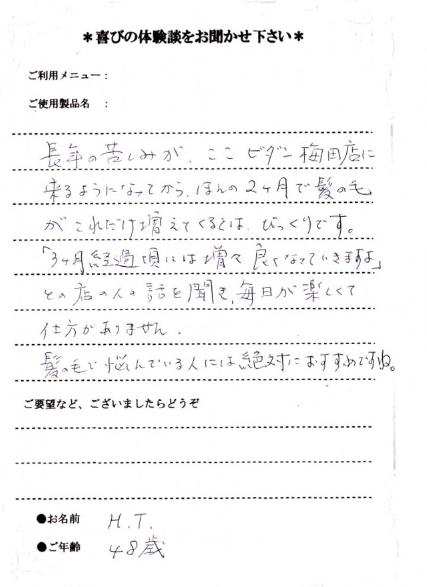 ＊喜びの体験談をお聞かせ下さい＊
ご利用メニュー：
ご使用製品名　：
長年の苦しみが、ここ ビダン梅田店に
来るようになってから、ほんの2ヶ月で髪の毛
がこれだけ増えてくるとは、びっくりです。
「3ヶ月経過頃には増々良くなっていきますよ」
との店の人の話を聞き、毎日が楽しくて
仕方がありません。
髪の毛で悩んでいる人には絶対におすすめですね。
ご要望など、ございましたらどうぞ
●お名前　H.T.
●ご年齢　48歳